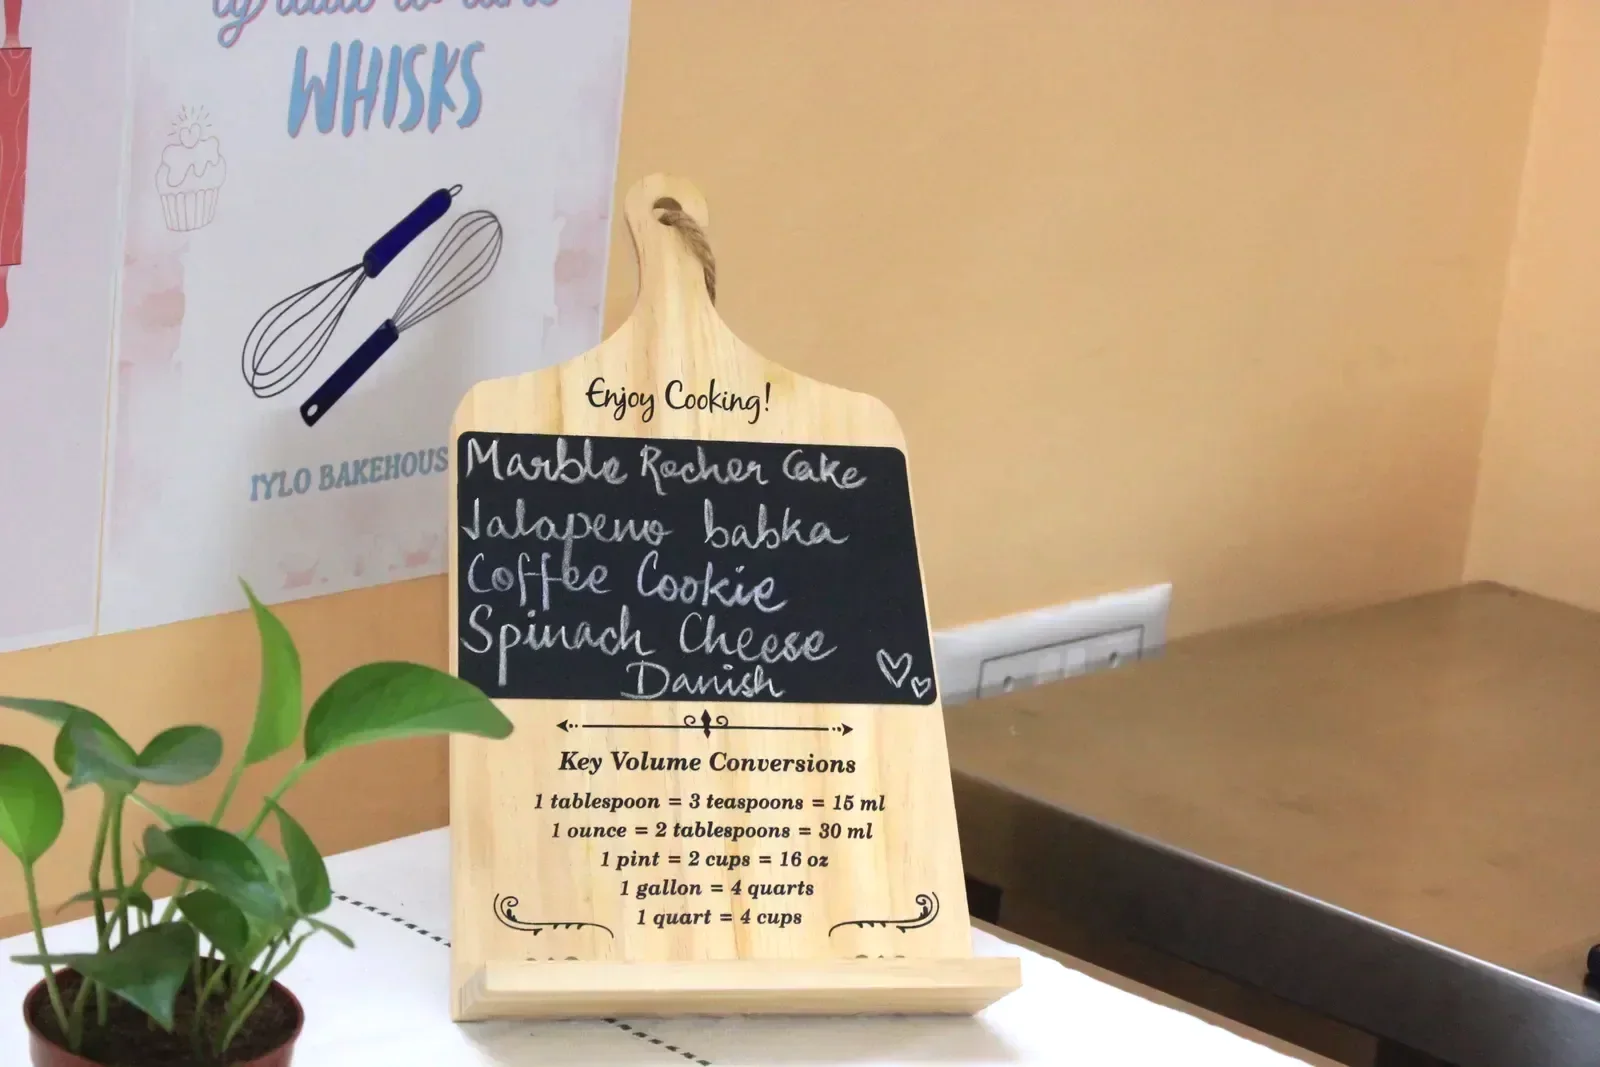 WHISKS
IYLO BAKEHOUS
Enjoy Cooking!
Marble Rocher Cake
Jalapeno babka
Coffee Cookie
Spinach Cheese
Danish
Key Volume Conversions
1 tablespoon = 3 teaspoons = 15 ml
1 ounce = 2 tablespoons = 30 ml
1 pint = 2 cups = 16 oz
1 gallon = 4 quarts
1 quart = 4 cups